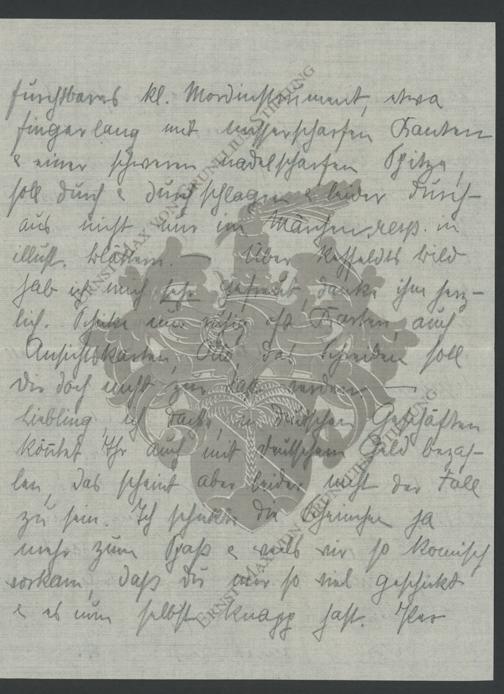 furchtbares kl. Mordinstrument, etwa
fingerlang mit messerscharfen Kanten
& einer schweren nadelscharfen Spitze,
soll durch & durch schlagen & leider durch-
aus nicht nur im Märchen resp. in
illustr. Blättern. Über Hoffeldts Bild
hab ich mich sehr gefreut, danke ihm herz-
lich. Schicke mir ruhig oft Karten, auch
Ansichtskarten, das Schreiben soll
Dir doch nicht zur Last werden —
Liebling ich dachte, in deutschen Geschäften
könntet Ihr auch mit deutschem Geld bezah-
len, das scheint aber leider nicht der Fall
zu sein. Ich schickte die Scheinchen ja
mehr zum Spaß & weil's mir so komisch
vorkam, daß du mir so viel geschickt
& es nun selbst knapp hast. Hier
ERNST MAX VON GRUNELIUS-STIFTUNG
ERNST MAX VON GRUNELIUS-STIFTUNG